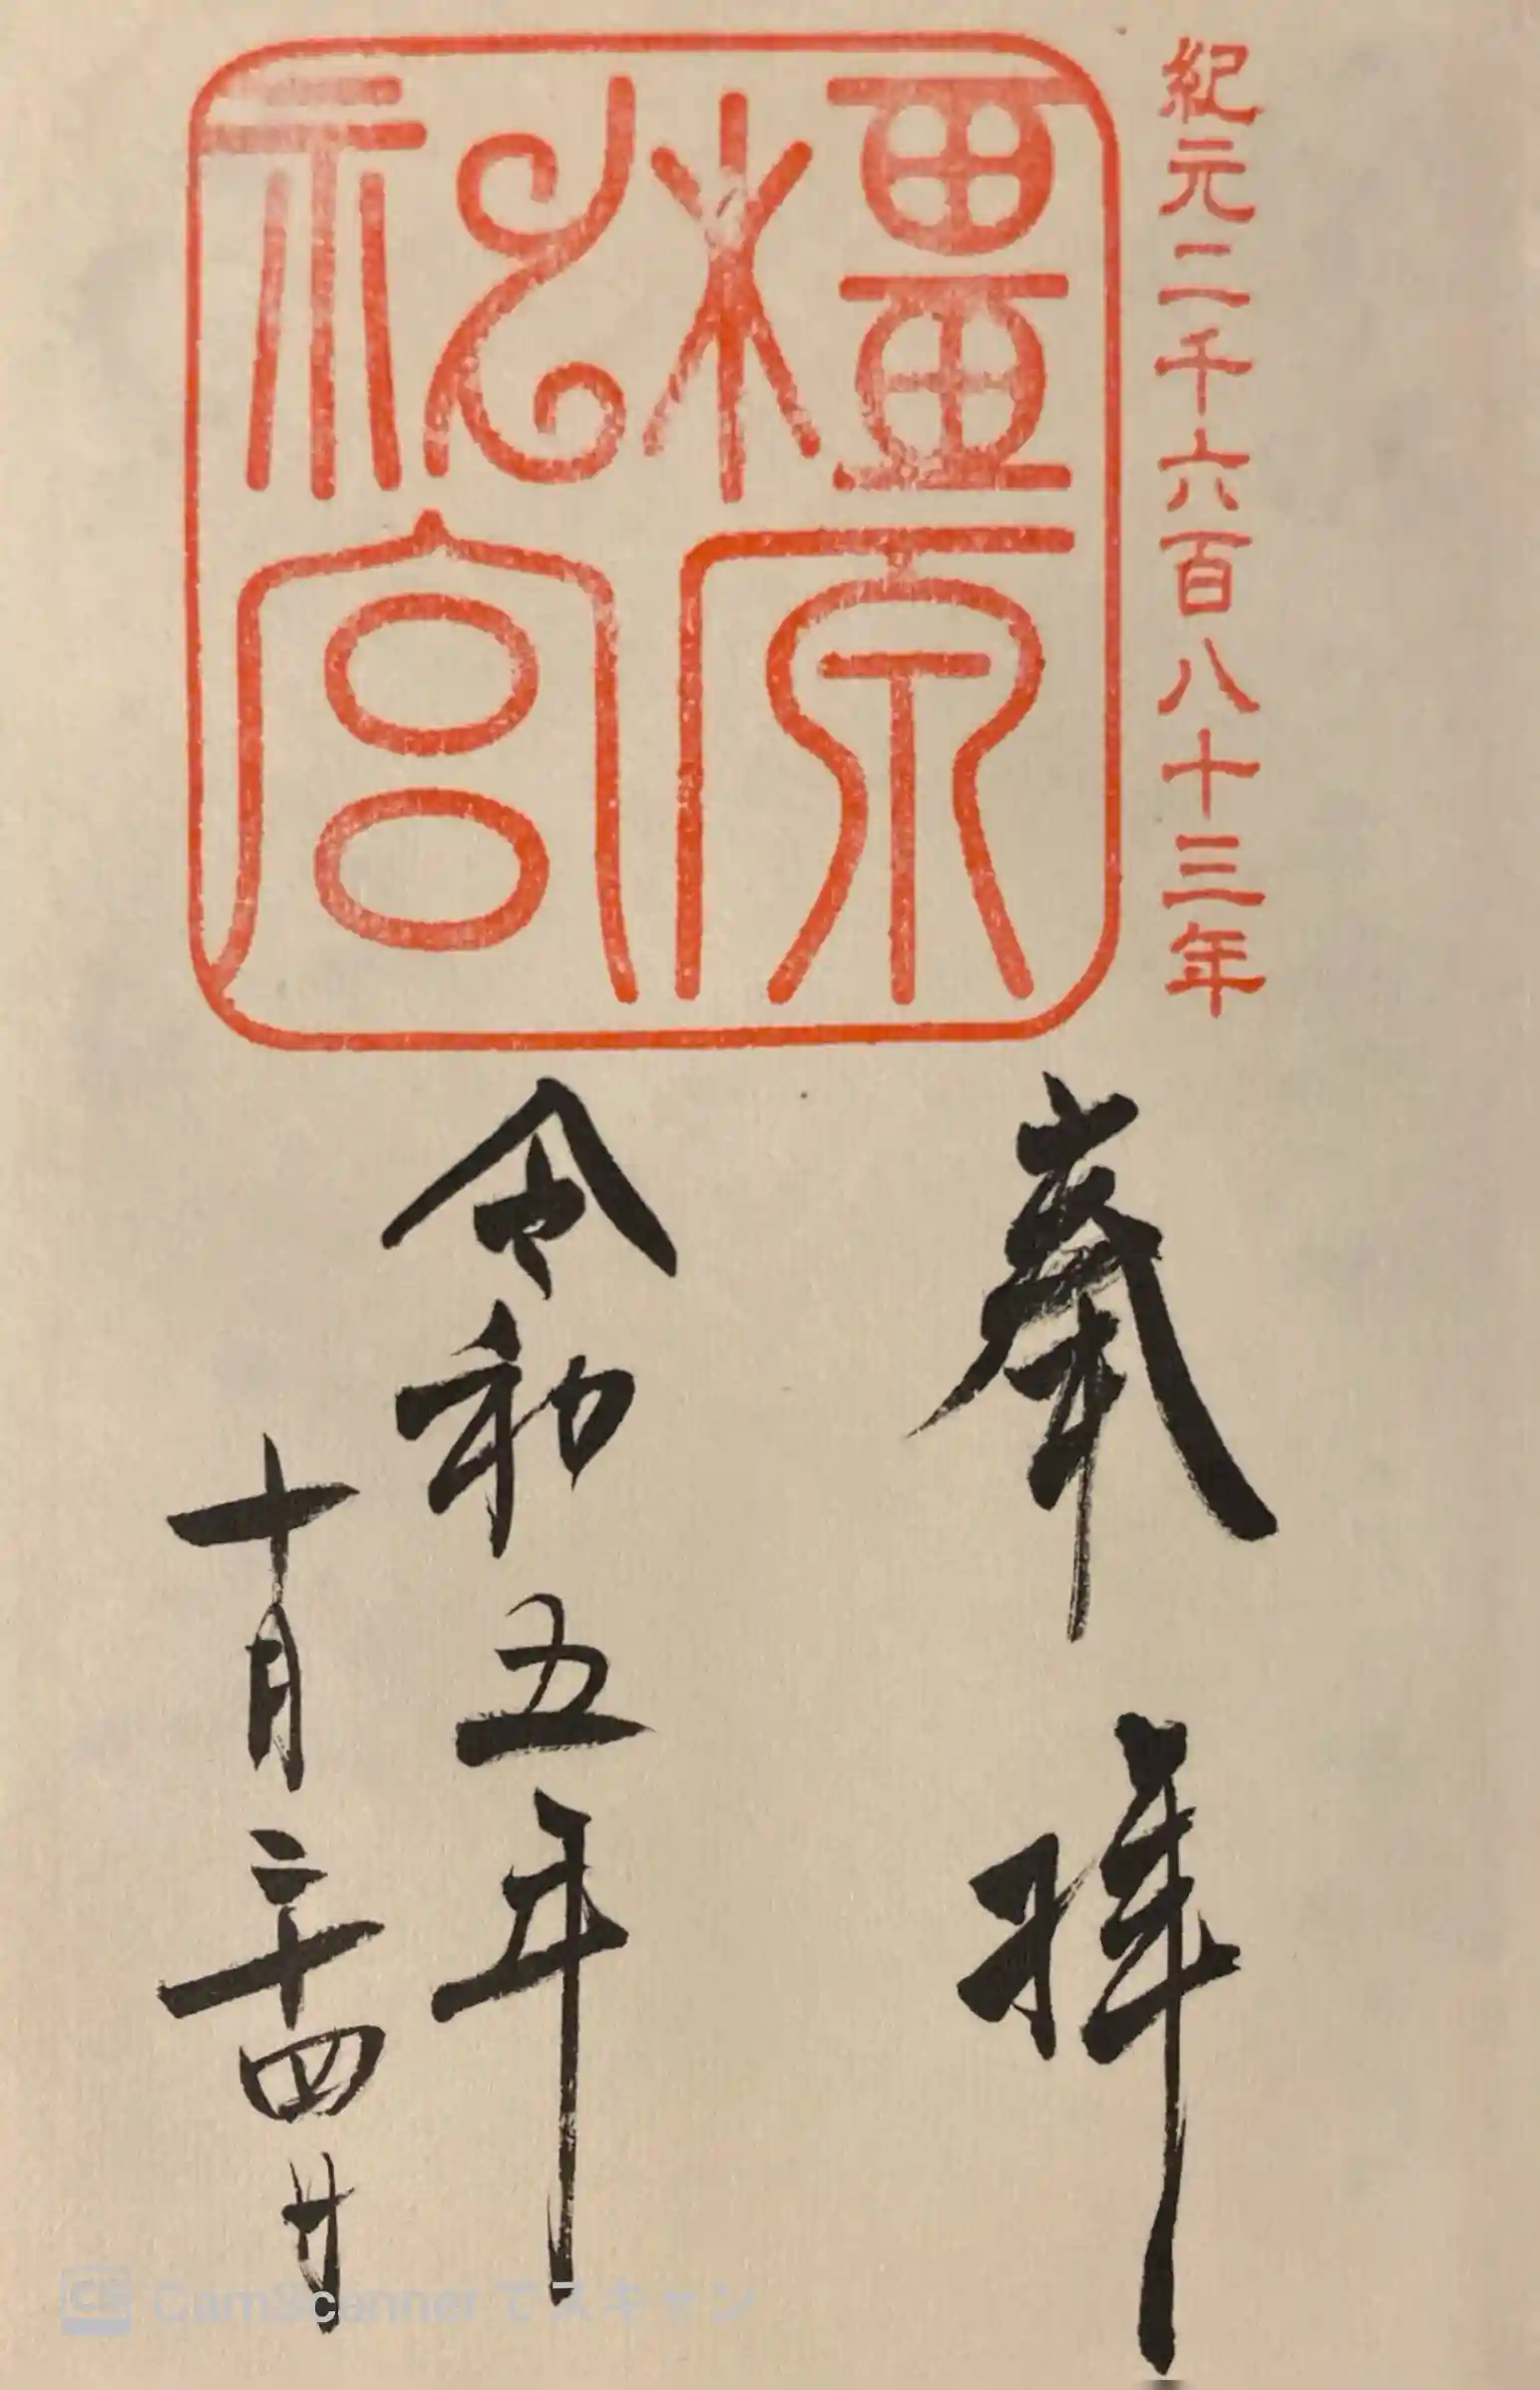 紀元二千六百八十三年
橿原神宮
奉拝
令和五年
十月二十四日
CS CamScannerでスキャン